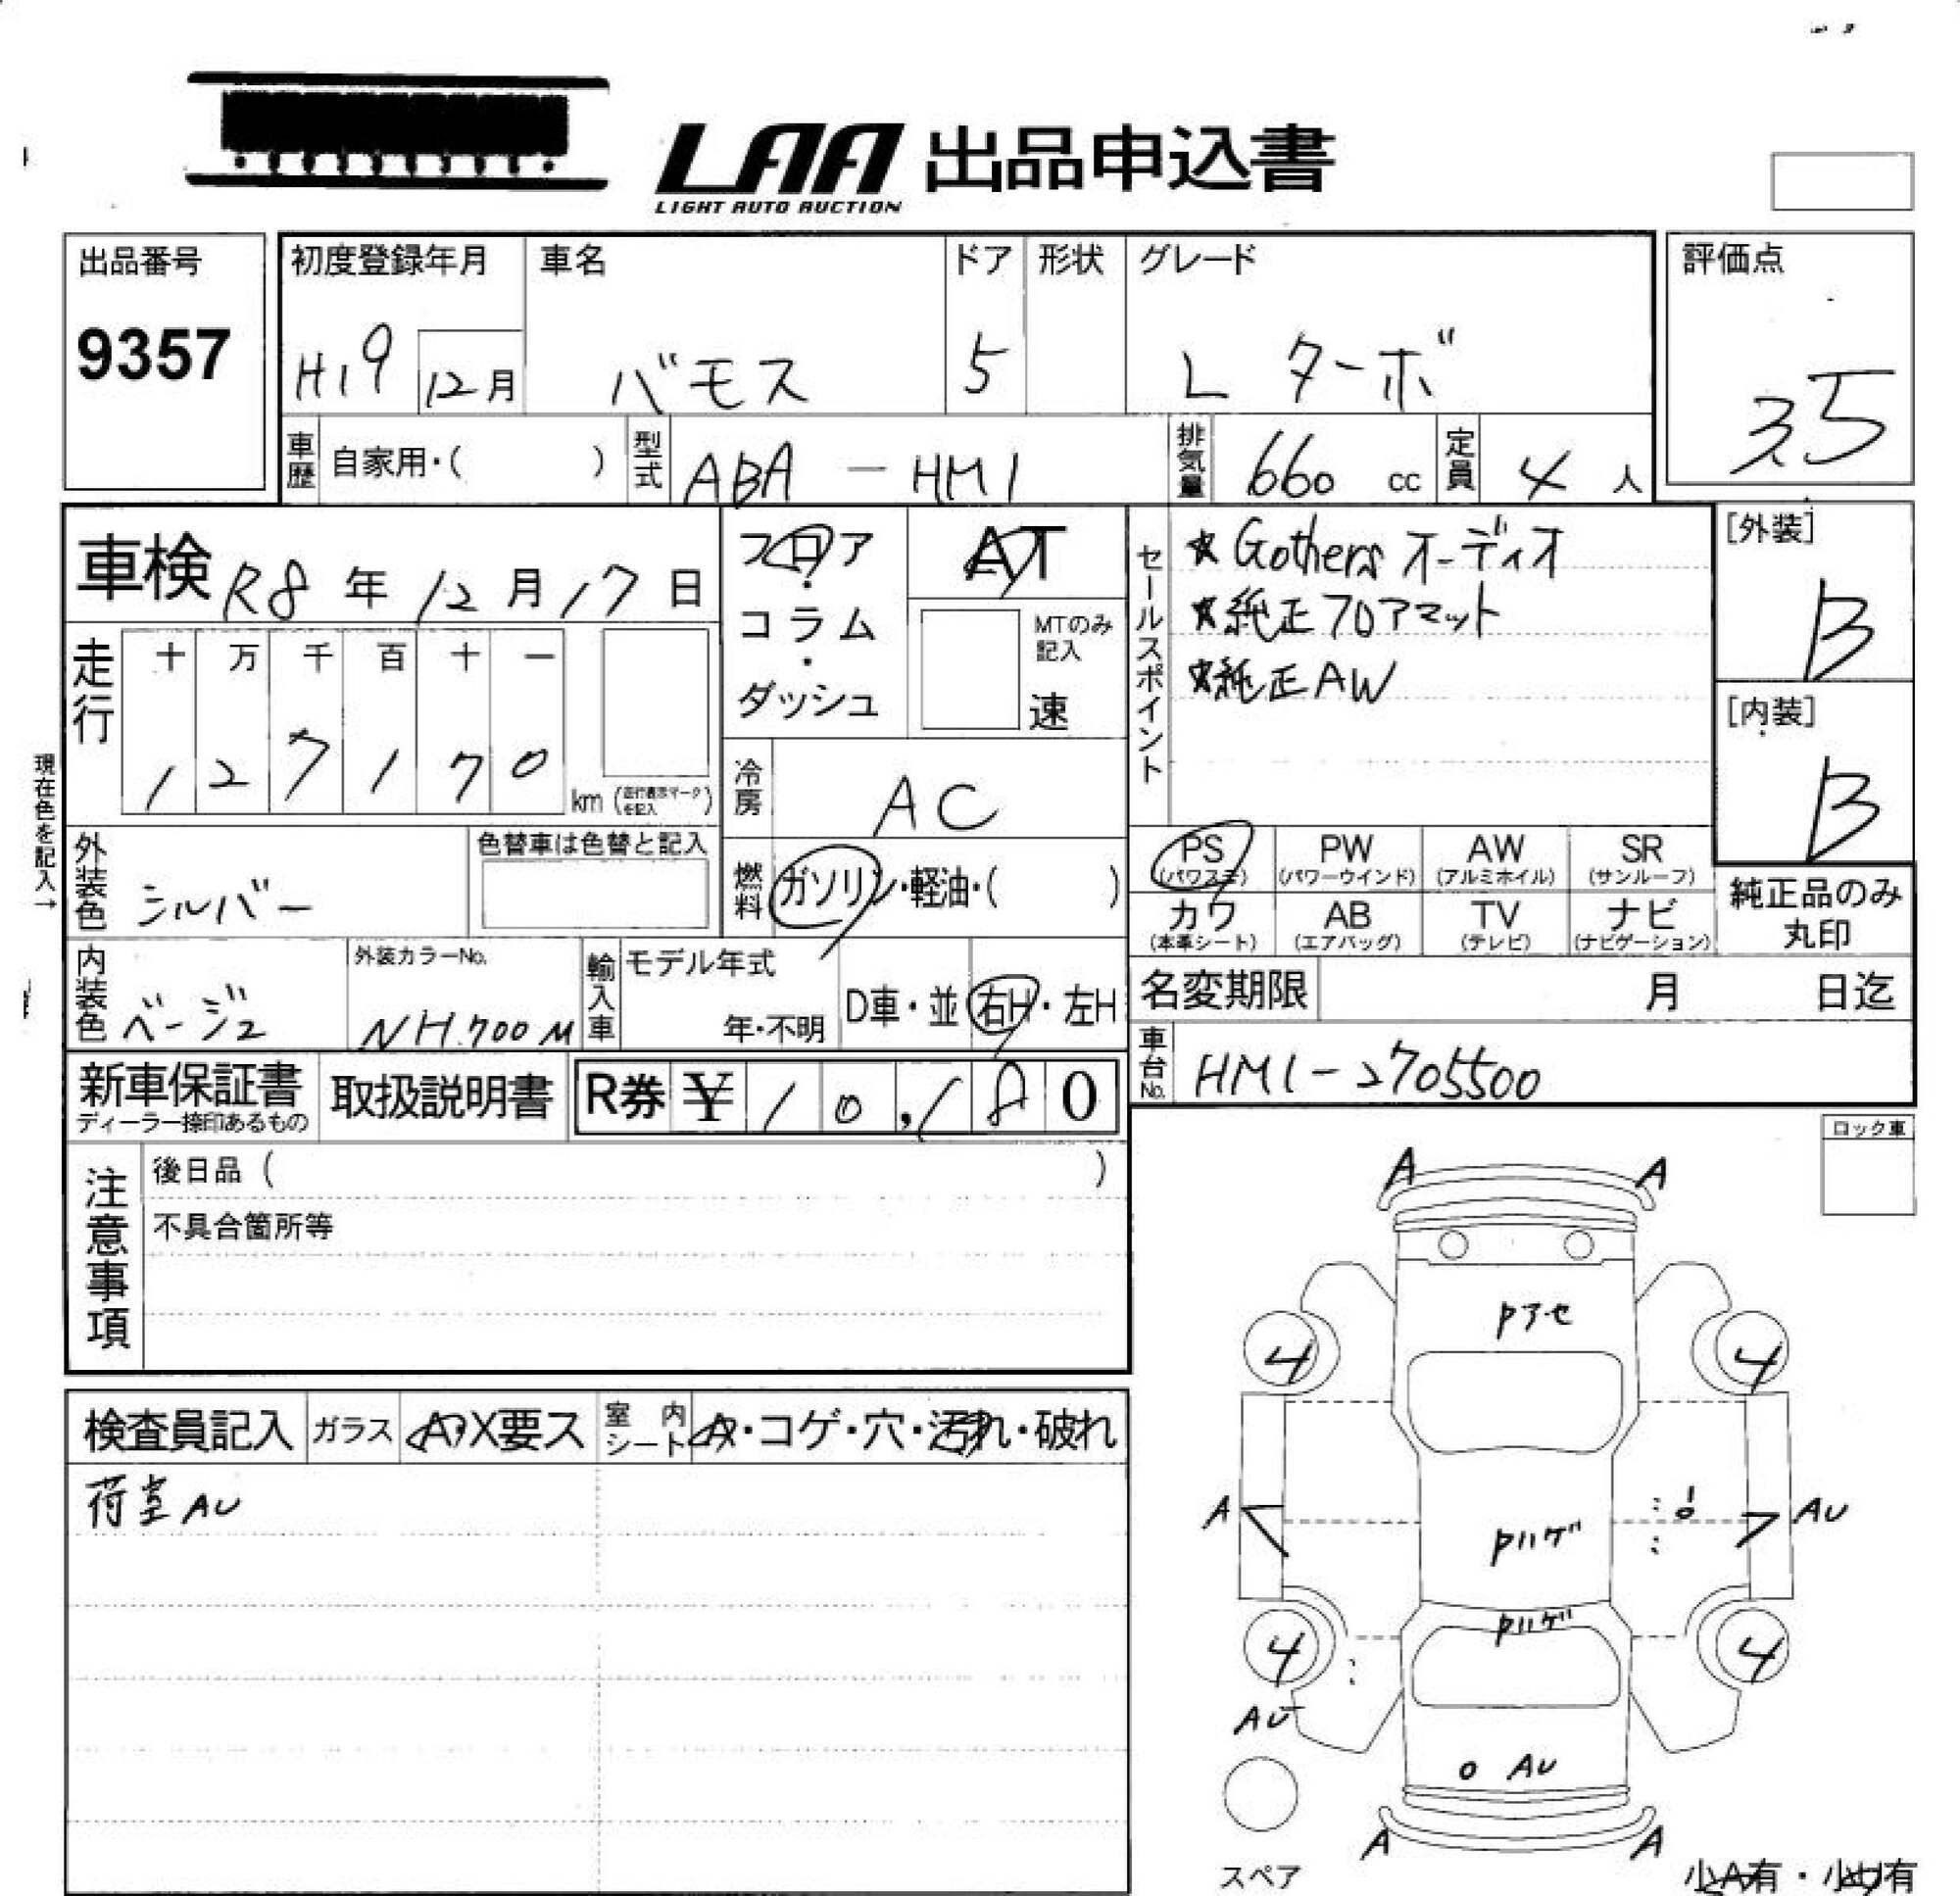 LAA 出品申込書
LIGHT AUTO AUCTION
出品番号
9357
初度登録年月
H19 12月
車名
バモス
ドア
5
形状
グレード
L ターボ
評価点
3.5
車歴 自家用・( )
型式 ABA - HM1
排気量 660 cc
定員 4 人
車検 R8 年 12 月 17 日
フロア・コラム・ダッシュ
AT
MTのみ記入
速
セールスポイント
★ Gathers オーディオ
★純正フロアマット
★純正AW
[外装]
B
[内装]
B
走行
十 万 千 百 十 一
1 2 7 1 7 0 km (走行表示マークを記入)
現在色を記入→
冷房 AC
外装色 シルバー
色替車は色替と記入
燃料 ガソリン・軽油・( )
PS (パワステ)
PW (パワーウインド)
AW (アルミホイル)
SR (サンルーフ)
カワ (本革シート)
AB (エアバッグ)
TV (テレビ)
ナビ (ナビゲーション)
純正品のみ丸印
内装色 ベージュ
外装カラーNo.
NH700M
輸入車
モデル年式
年・不明
D車・並
右H・左H
名変期限 月 日迄
車台No. HM1-2705500
新車保証書
ディーラー捺印あるもの
取扱説明書
R券 ¥ 10,180
注意事項
後日品 ( )
不具合箇所等
ロック車
検査員記入
ガラス A・X要ス
室内シート A・コゲ・穴・汚れ・破れ
荷室AU
A A
Pアセ
4 4
A
Pハゲ
AU
Pハゲ
4 4
AU
AU
A A
スペア
小A有・小U有